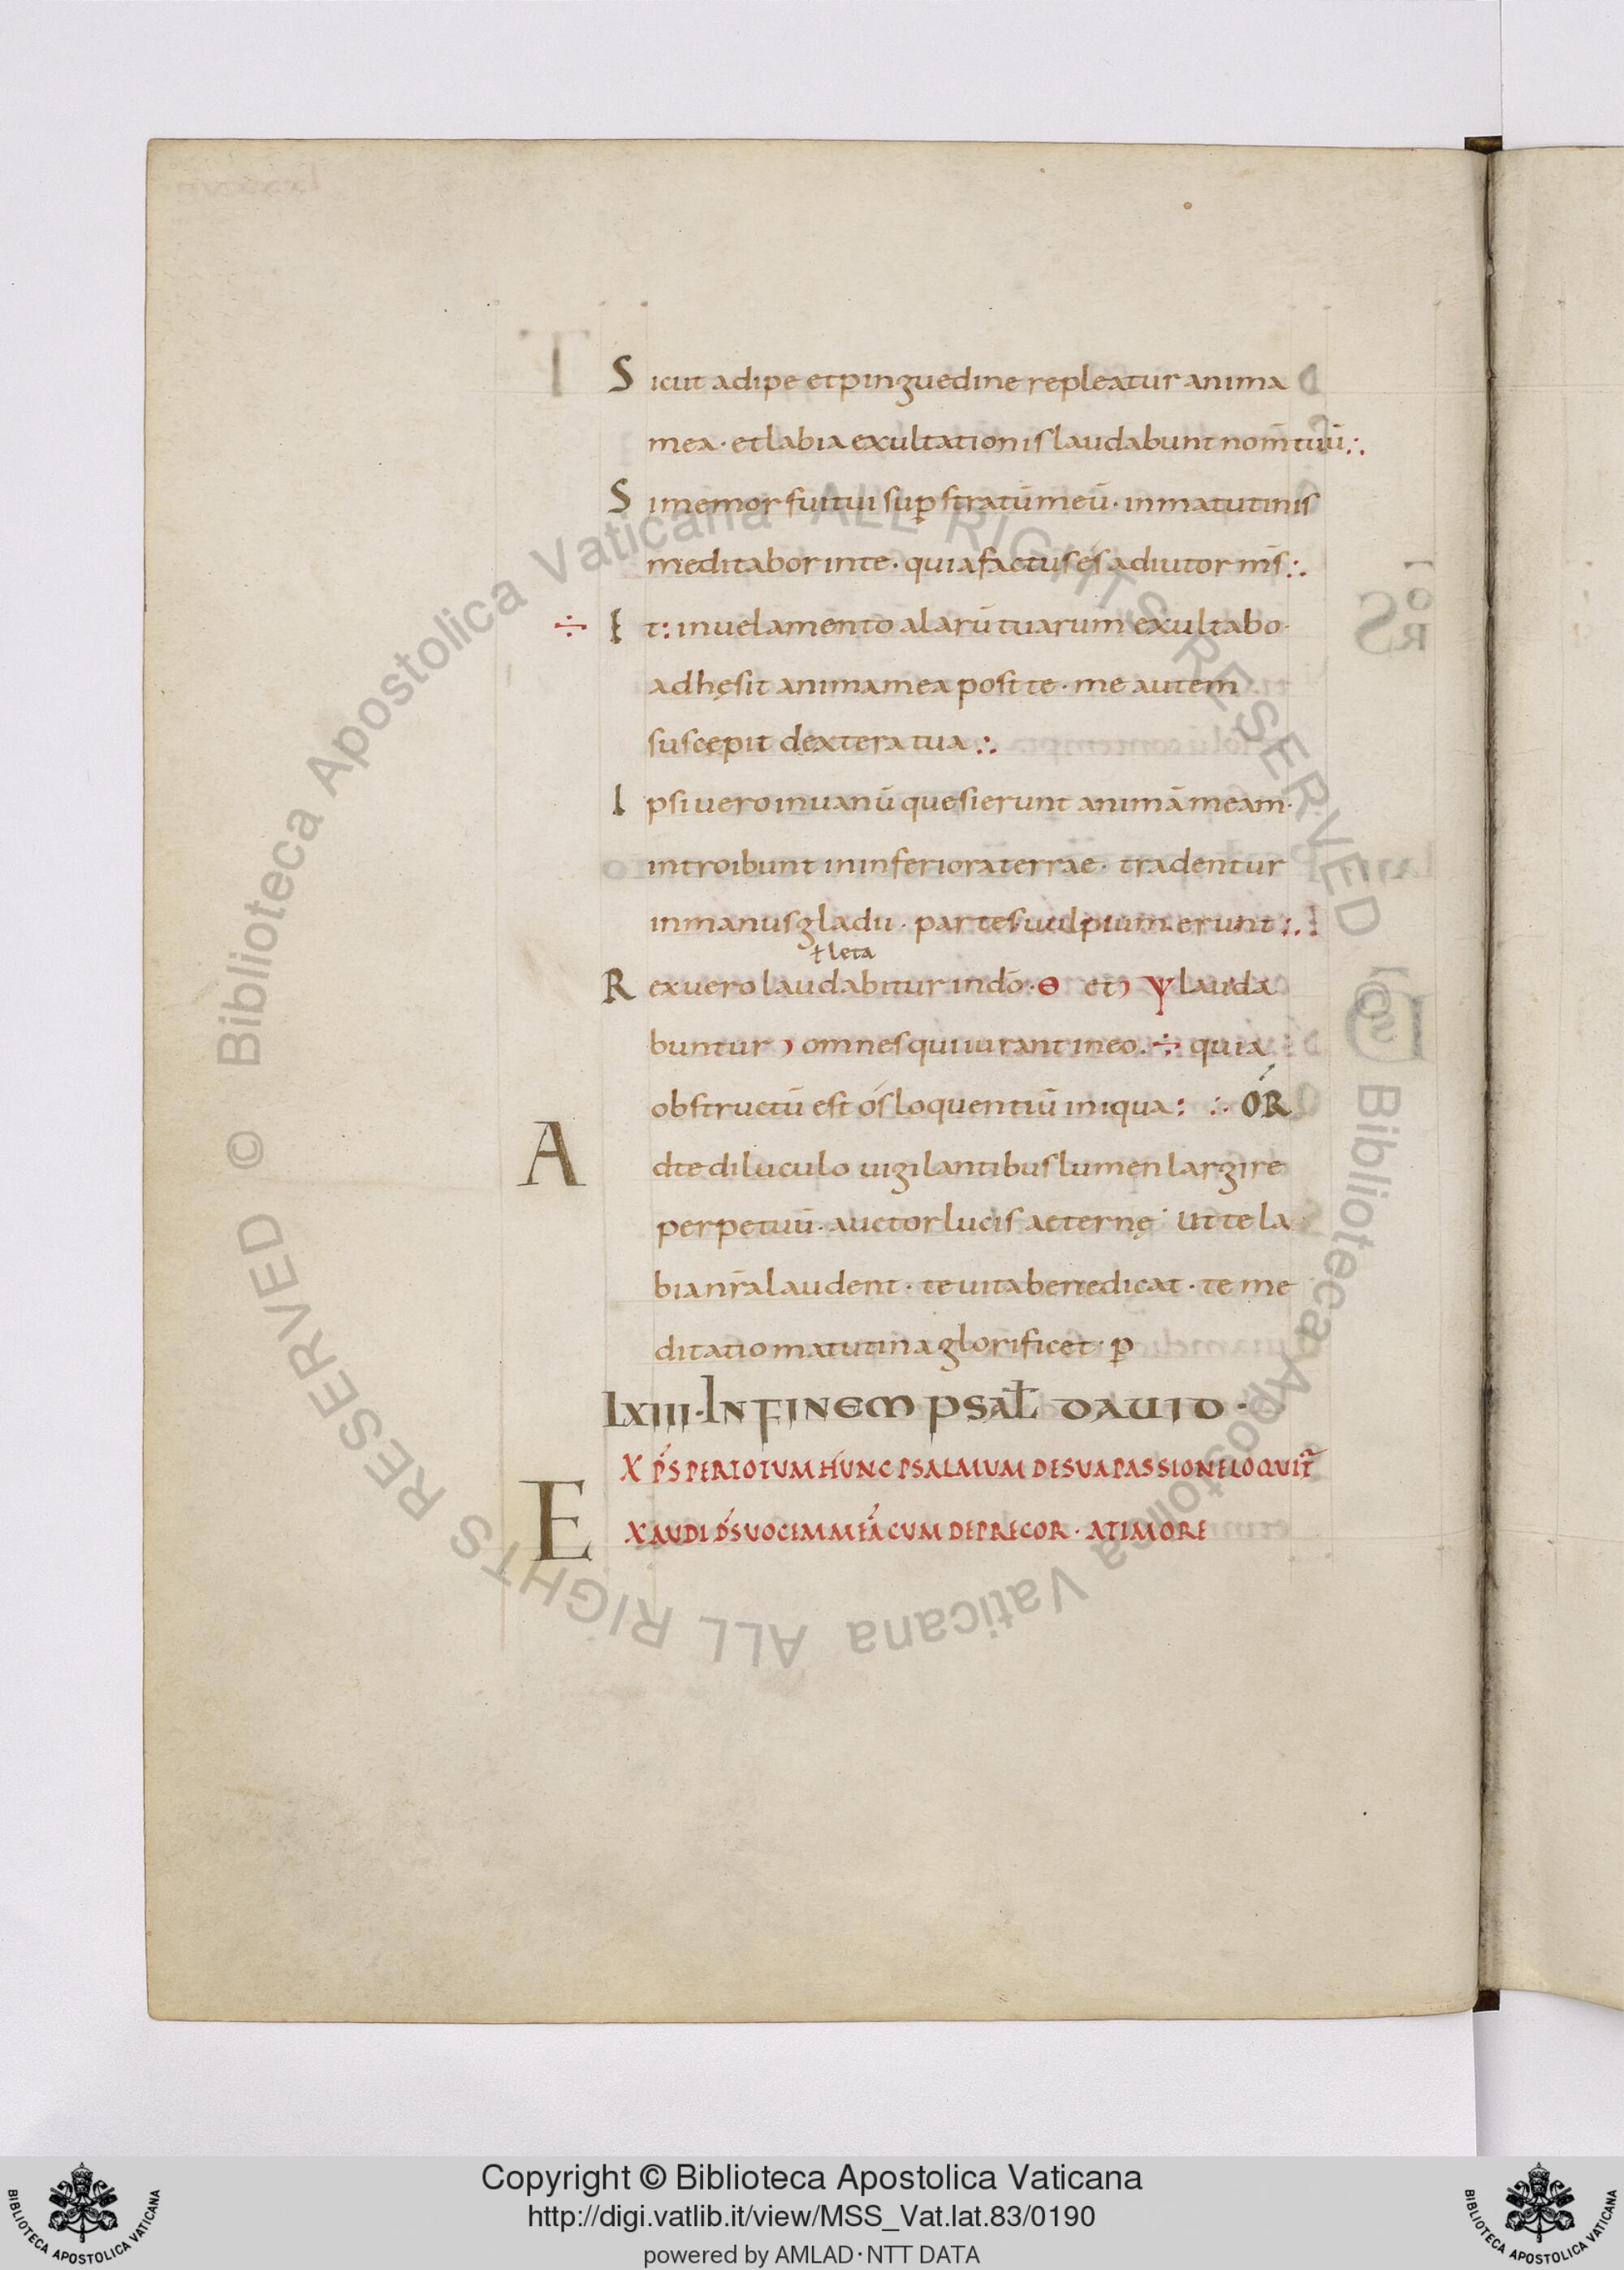 Sicut adipe et pinguedine repleatur anima
mea · et labia exultationis laudabunt nom̄ tuū :·
Si memor fui tui sup̱ stratū meū · in matutinis
meditabor in te · quia factus és adiutor m̄s :·
÷ Et: in uelamento alarū tuarum exultabo ·
adhęsit anima mea post te · me autem
suscepit dextera tua :·
Ipsi uero in uanū quesierunt animā meam ·
introibunt in inferiora terrae · tradentur
in manus gladii · partes uulpium erunt :·
ł leta
Rex uero laudabitur in dō · Θ et) ψ lauda
buntur ) omnes qui iurant in eo . ÷ quia
obstructū est ós loquentiū iniqua : :· ÓR
Ad te diluculo uigilantibus lumen largire
perpetuū · auctor lucis aeternę · Ut te la
bia nr̄a laudent · te uita benedicat · te me
ditatio matutina glorificet · p̱
LXIII · IN FINEM PSAŁ DAUID ·
XP̄S PER TOTUM HUNC PSALMUM DE SUA PASSIONE LOQUIT̄
EXAUDI D̄S UOCEM MEĀ CUM DEPRECOR · A TIMORE
© Biblioteca Apostolica Vaticana ALL RIGHTS RESERVED
© Biblioteca Apostolica Vaticana ALL RIGHTS RESERVED
Copyright © Biblioteca Apostolica Vaticana
http://digi.vatlib.it/view/MSS_Vat.lat.83/0190
powered by AMLAD·NTT DATA
BIBLIOTECA APOSTOLICA VATICANA
BIBLIOTECA APOSTOLICA VATICANA